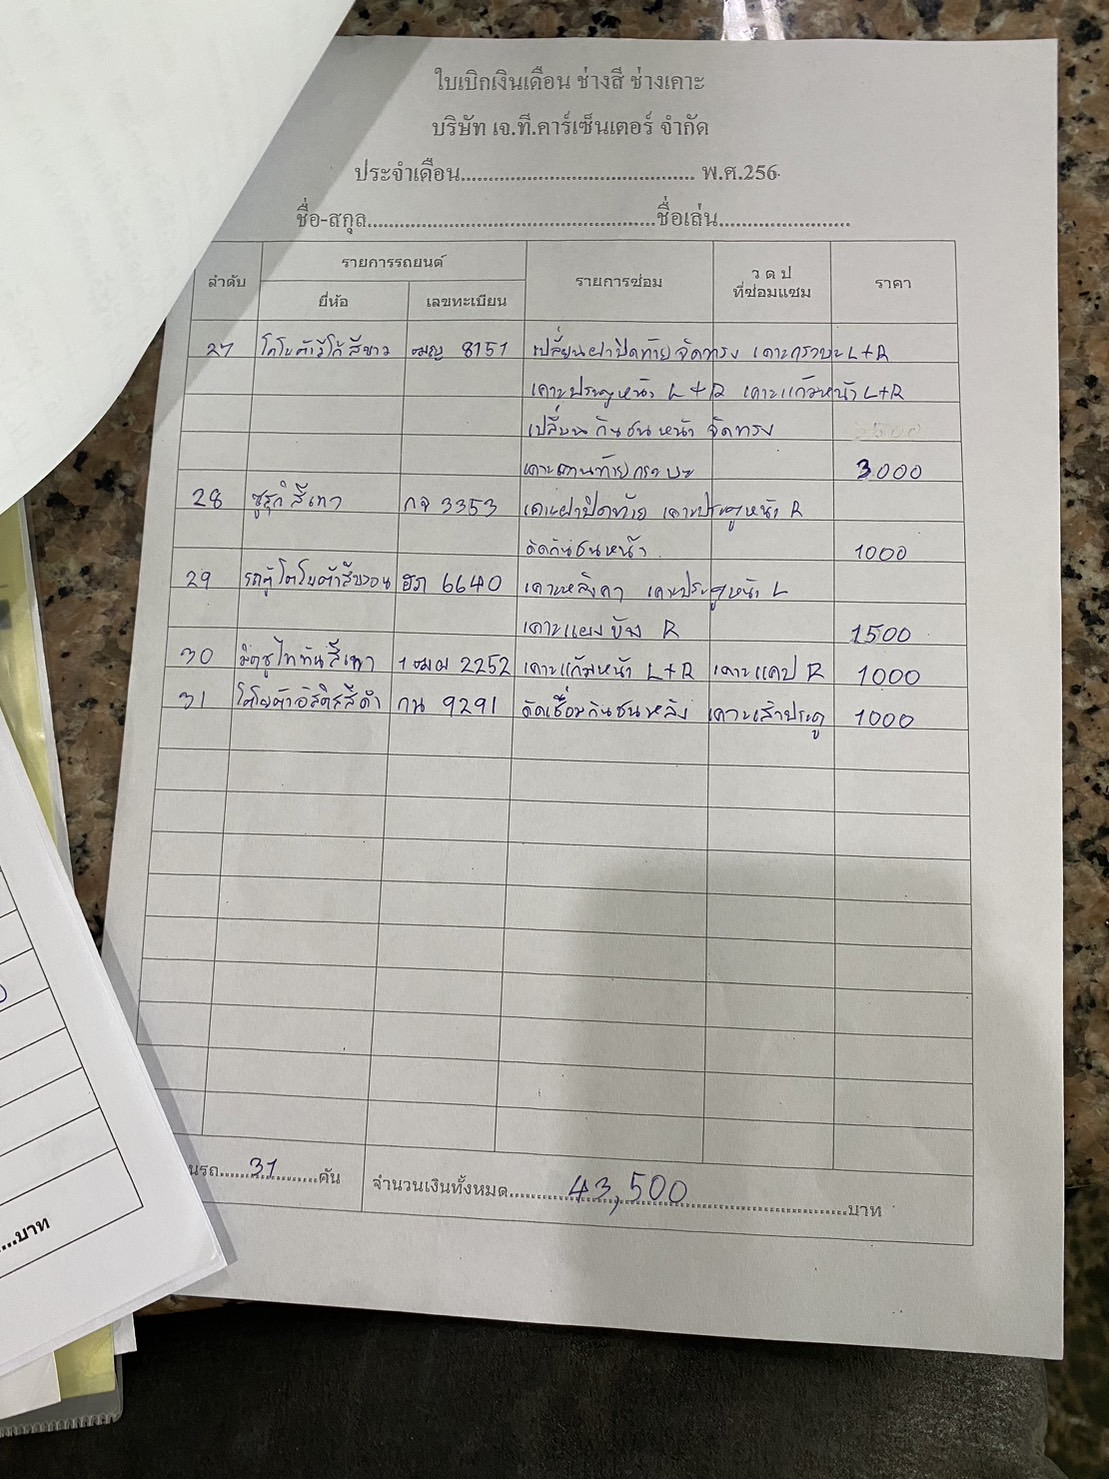 ใบเบิกเงินเดือน ช่างสี ช่างเคาะ
บริษัท เจ.ที.คาร์เซ็นเตอร์ จำกัด
ประจำเดือน........................................ พ.ศ.256.
ชื่อ-สกุล..................................................ชื่อเล่น.......................
ลำดับ รายการรถยนต์ รายการซ่อม ว ด ป ที่ซ่อมแซม ราคา
ยี่ห้อ เลขทะเบียน
27 โตโยต้ารีโว้สีขาว ฒญ 8151 เปลี่ยนฝาปิดท้าย จัดทรง เคาะกระบะ L+R
เคาะประตูหน้า L+R เคาะแก้มหน้า L+R
เปลี่ยนกันชนหน้า จัดทรง
เคาะคานท้ายกระบะ 3000
28 ซูซุกิ สีเทา กจ 3353 เคาะฝาปิดท้าย เคาะประตูหน้า R
ดัดกันชนหน้า 1000
29 รถตู้โตโยต้าสีบรอน ฮภ 6640 เคาะหลังคา เคาะประตูหน้า L
เคาะแผงข้าง R 1500
30 มิตซูไททันสีเทา 1ฒฒ 2252 เคาะแก้มหน้า L+R เคาะแคป R 1000
31 โตโยต้าอัสติสสีดำ กน 9291 ดัดเชื่อมกันชนหลัง เคาะเสาประตู 1000
นรถ....31....คัน จำนวนเงินทั้งหมด....43,500....บาท
...บาท